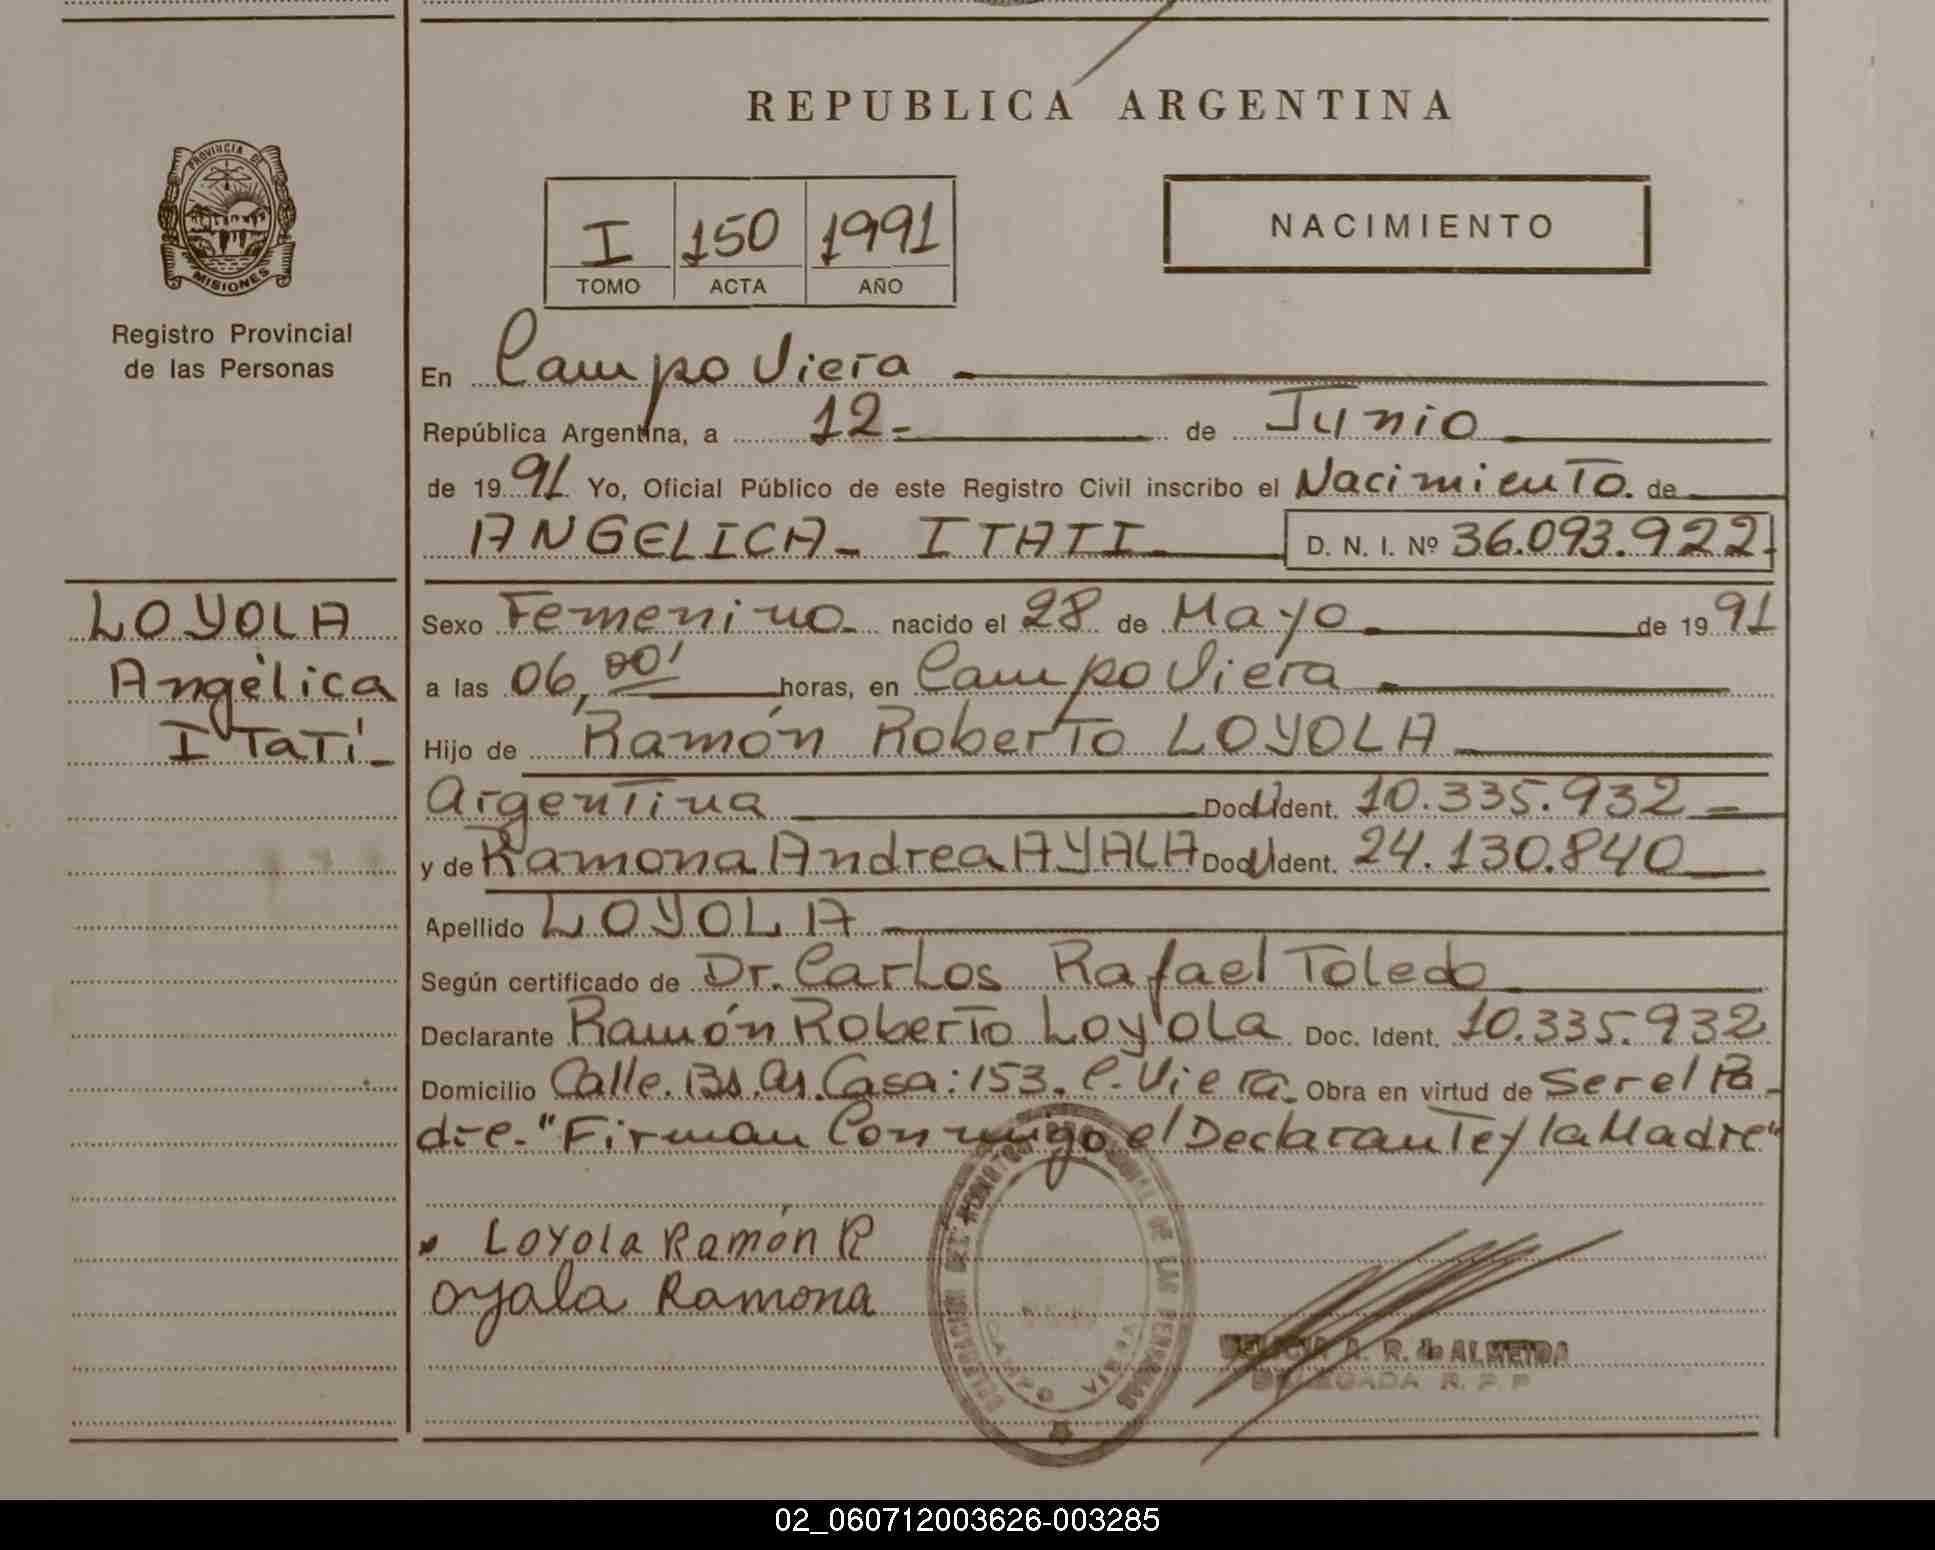 REPUBLICA ARGENTINA
PROVINCIA DE
MISIONES
Registro Provincial
de las Personas
I 150 1991
TOMO ACTA AÑO
NACIMIENTO
En Campo Viera
República Argentina, a 12- de Junio
de 1991 Yo, Oficial Público de este Registro Civil inscribo el Nacimiento. de
ANGELICA- ITATI- D. N. I. Nº 36.093.922-
LOYOLA
Angélica
ITaTí-
Sexo Femenino- nacido el 28 de Mayo de 1991
a las 06,00' horas, en Campo Viera
Hijo de Ramón Roberto LOYOLA
Argentina Doc. Ident. 10.335.932-
y de Ramona Andrea AYALA Doc. Ident. 24.130.840
Apellido LOYOLA
Según certificado de Dr. Carlos Rafael Toledo
Declarante Ramón Roberto Loyola Doc. Ident. 10.335.932
Domicilio Calle. Bs. As. Casa: 153. C. Viera- Obra en virtud de Ser el Pa-
dre.- "Firman Conmigo el Declarante y la Madre"
Loyola Ramón R
ayala Ramona
DE LAS PERSONAS
CAMPO VIERA
A. R. de ALMEIDA
DELEGADA R. P. P
02_060712003626-003285